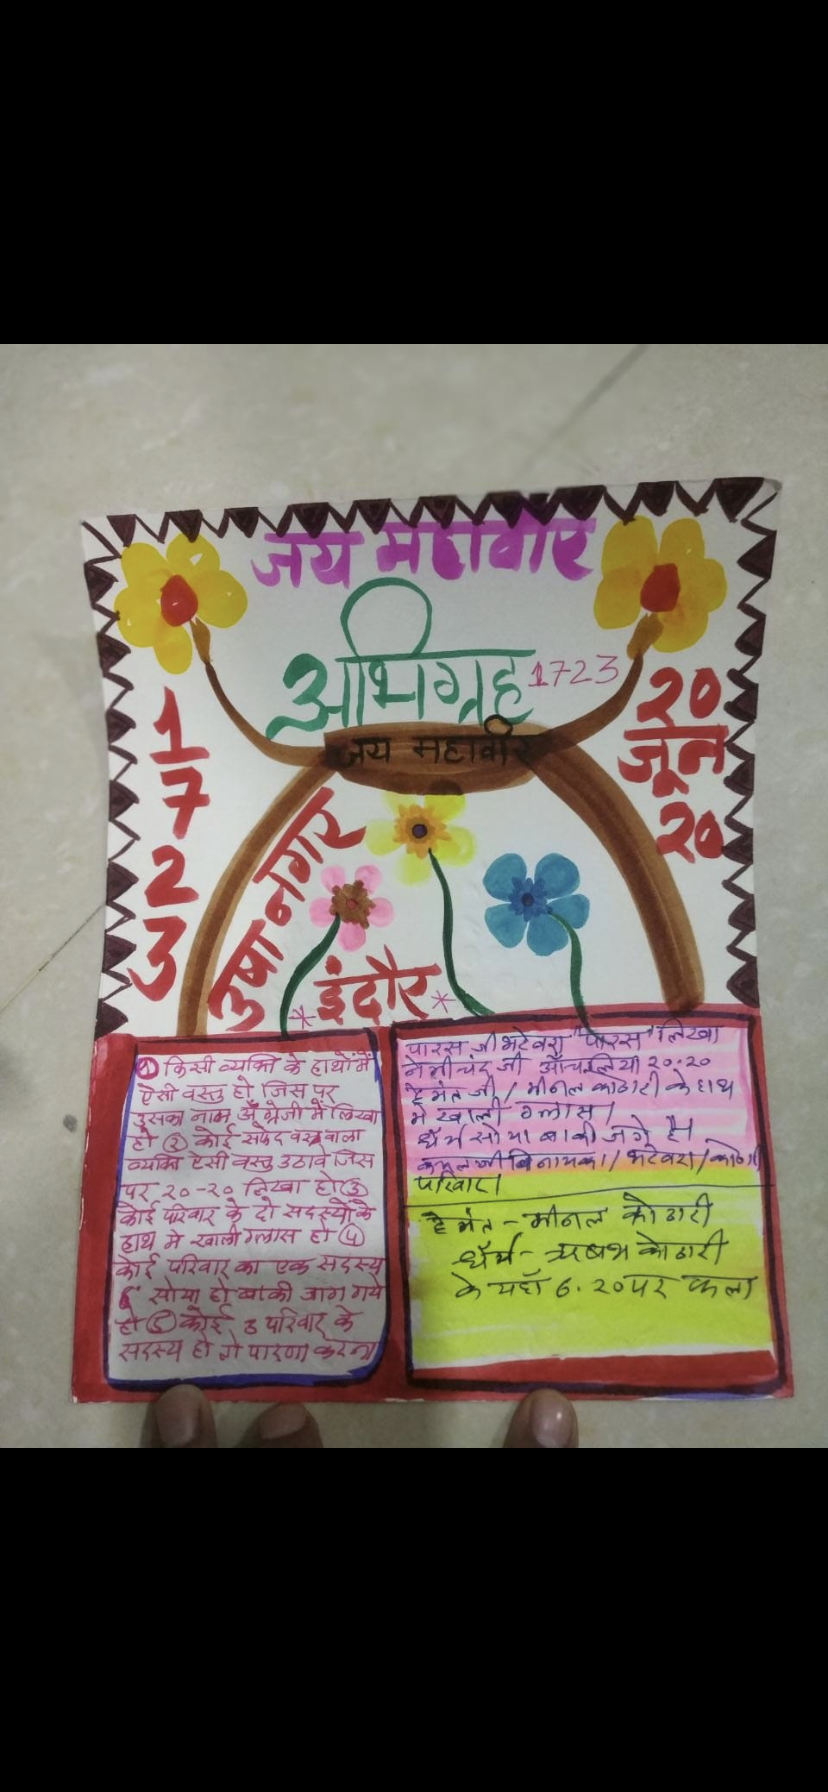 जय महावीर
अभिग्रह 1723
जय महावीर
1723
20 जून 20
उषा नगर
* इंदौर *
① किसी व्यक्ति के हाथों में
ऐसी वस्तु हो जिस पर
उसका नाम अँग्रेजी में लिखा
हो ② कोई सफेद वस्त्र वाला
व्यक्ति ऐसी वस्तु उठावे जिस
पर २०-२० लिखा हो ③
कोई परिवार के दो सदस्यों के
हाथ मे खाली ग्लास हो ④
कोई परिवार का एक सदस्य
सोया हो बाकी जाग गये
हो ⑤ कोई 3 परिवार के
सदस्य हो तो पारणा करना
पारस जी भटेवरा "पारस" लिखा
नेमीचंद जी आँचलिया २०.२०
हेमंत जी / मीनल कोठारी के हाथ
मे खाली ग्लास।
धैर्य सोया बाकी जगे है
जी बिनायका / भटेवरा / कोठारी
परिवार।
हेमंत - मीनल कोठारी
धैर्य - ऋषभ कोठारी
के यहाँ 6.20 पर फला